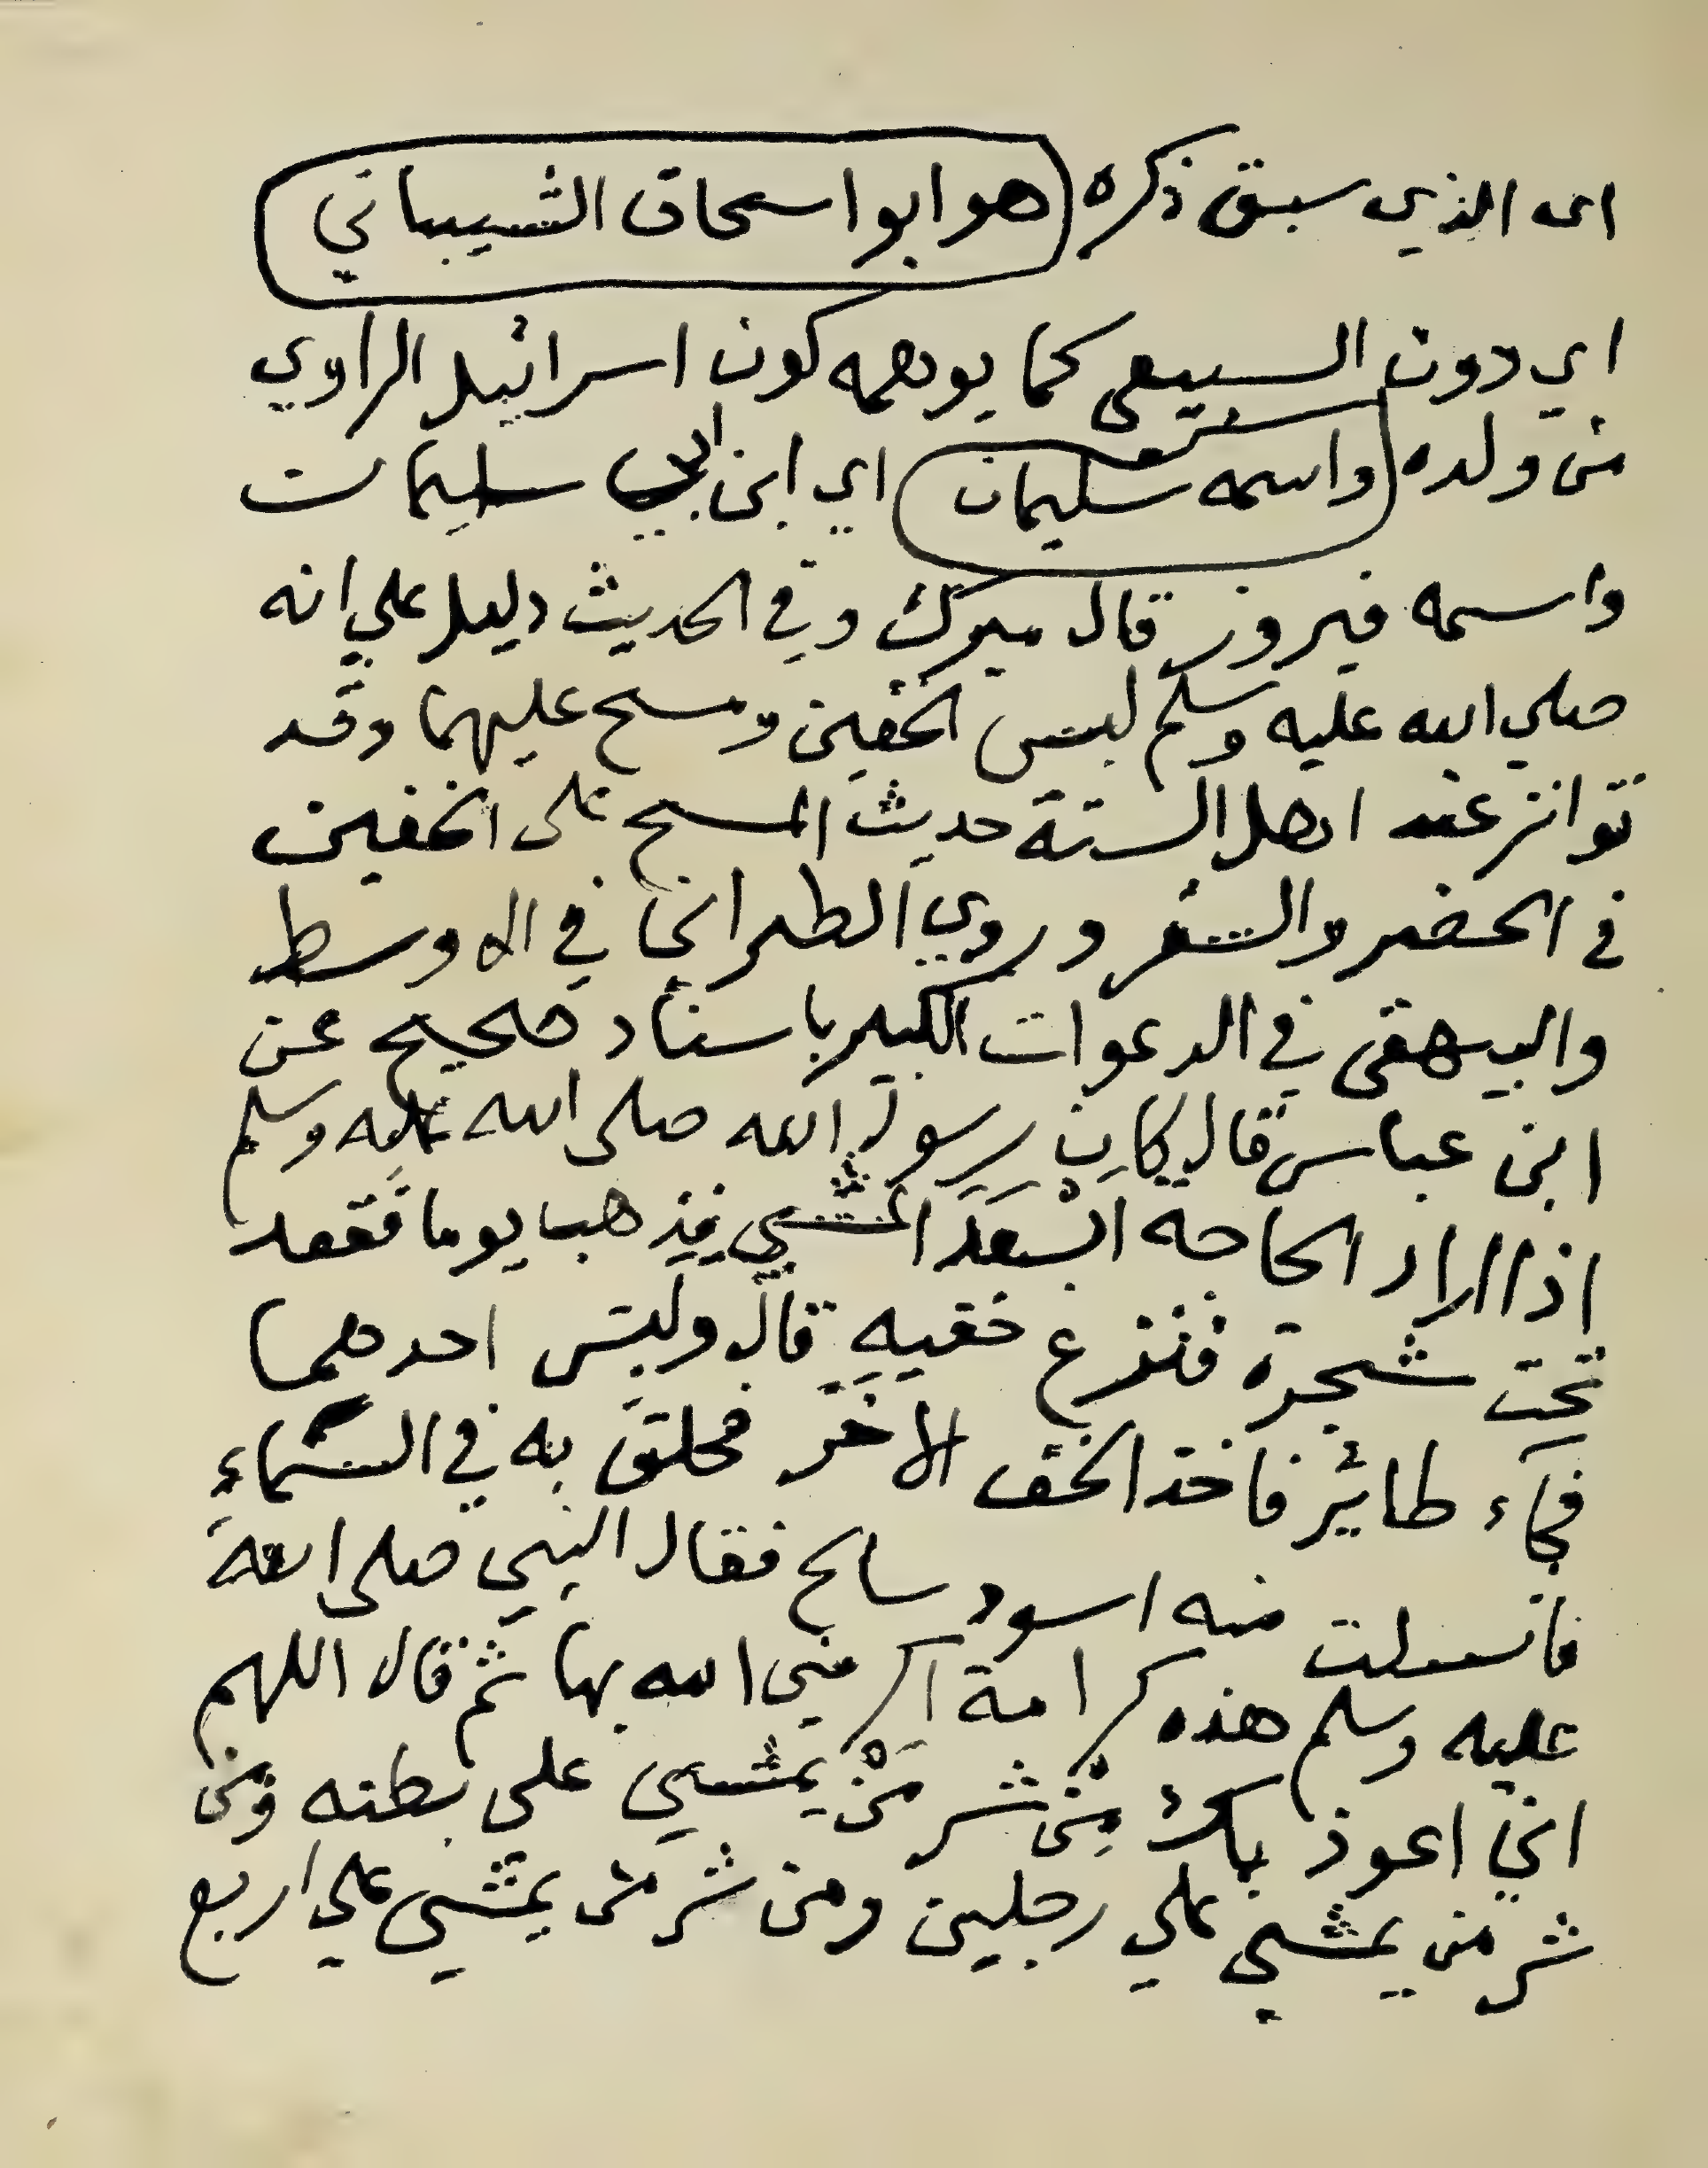 اى الذي سبق ذكره هو ابو اسحاق الشيباني
اي دون السبيعى كما يوهمه كون اسرائيل الراوي
من ولده واسمه سليمان اي ابن ابي سليمان
واسمه فيروز قال ميرك وفي الحديث دليل علي انه
صلي الله عليه وسلم لبس الخفين ومسح عليهما وقد
تواتر عند اهل السنة حديث المسح على الخفين
في الحضر والسفر وروي الطبراني في الاوسط
والبيهقى في الدعوات الكبير باسناد صحيح عن
ابن عباس قال كان رسول الله صلى الله عليه وسلم
اذا اراد الحاجة ابْعَدَ المشي فذهب يوما فقعد
تحت شجرة فنزع خفيه قال ولبس احدهما
فجاء طائر فاخذ الخف الاخر فحلق به في السماء
فانسلت منه اسود سالح فقال النبي صلى الله
عليه وسلم هذه كرامة اكرمني الله بها ثم قال اللهم
اني اعوذ بك مِنْ شر مَنْ يمشي على بطنه ومن
شر من يمشي علي رجلين ومن شر من يمشي علي اربع